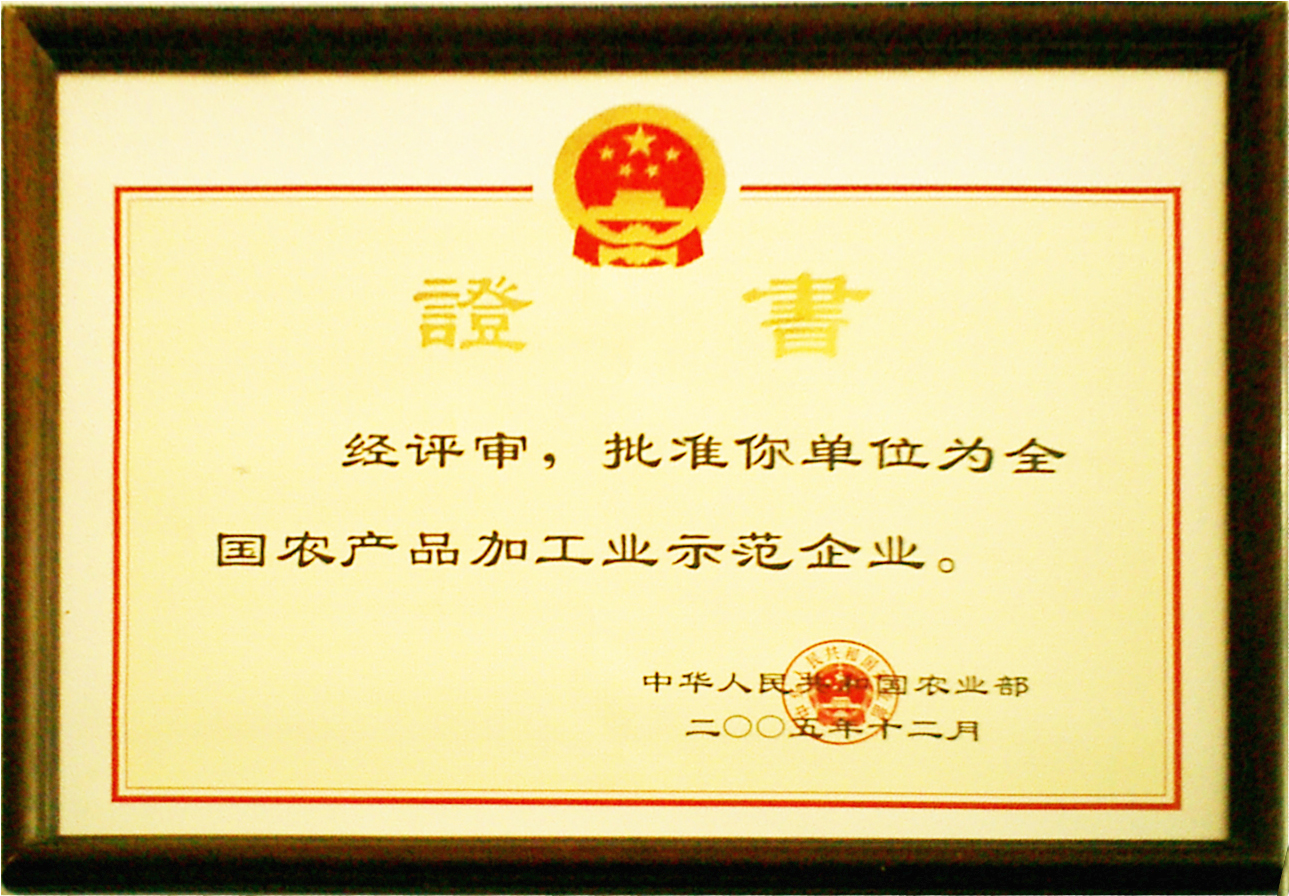 證 書
经评审，批准你单位为全
国农产品加工业示范企业。
中华人民共和国农业部
二〇〇五年十二月
中华人民共和国农业部